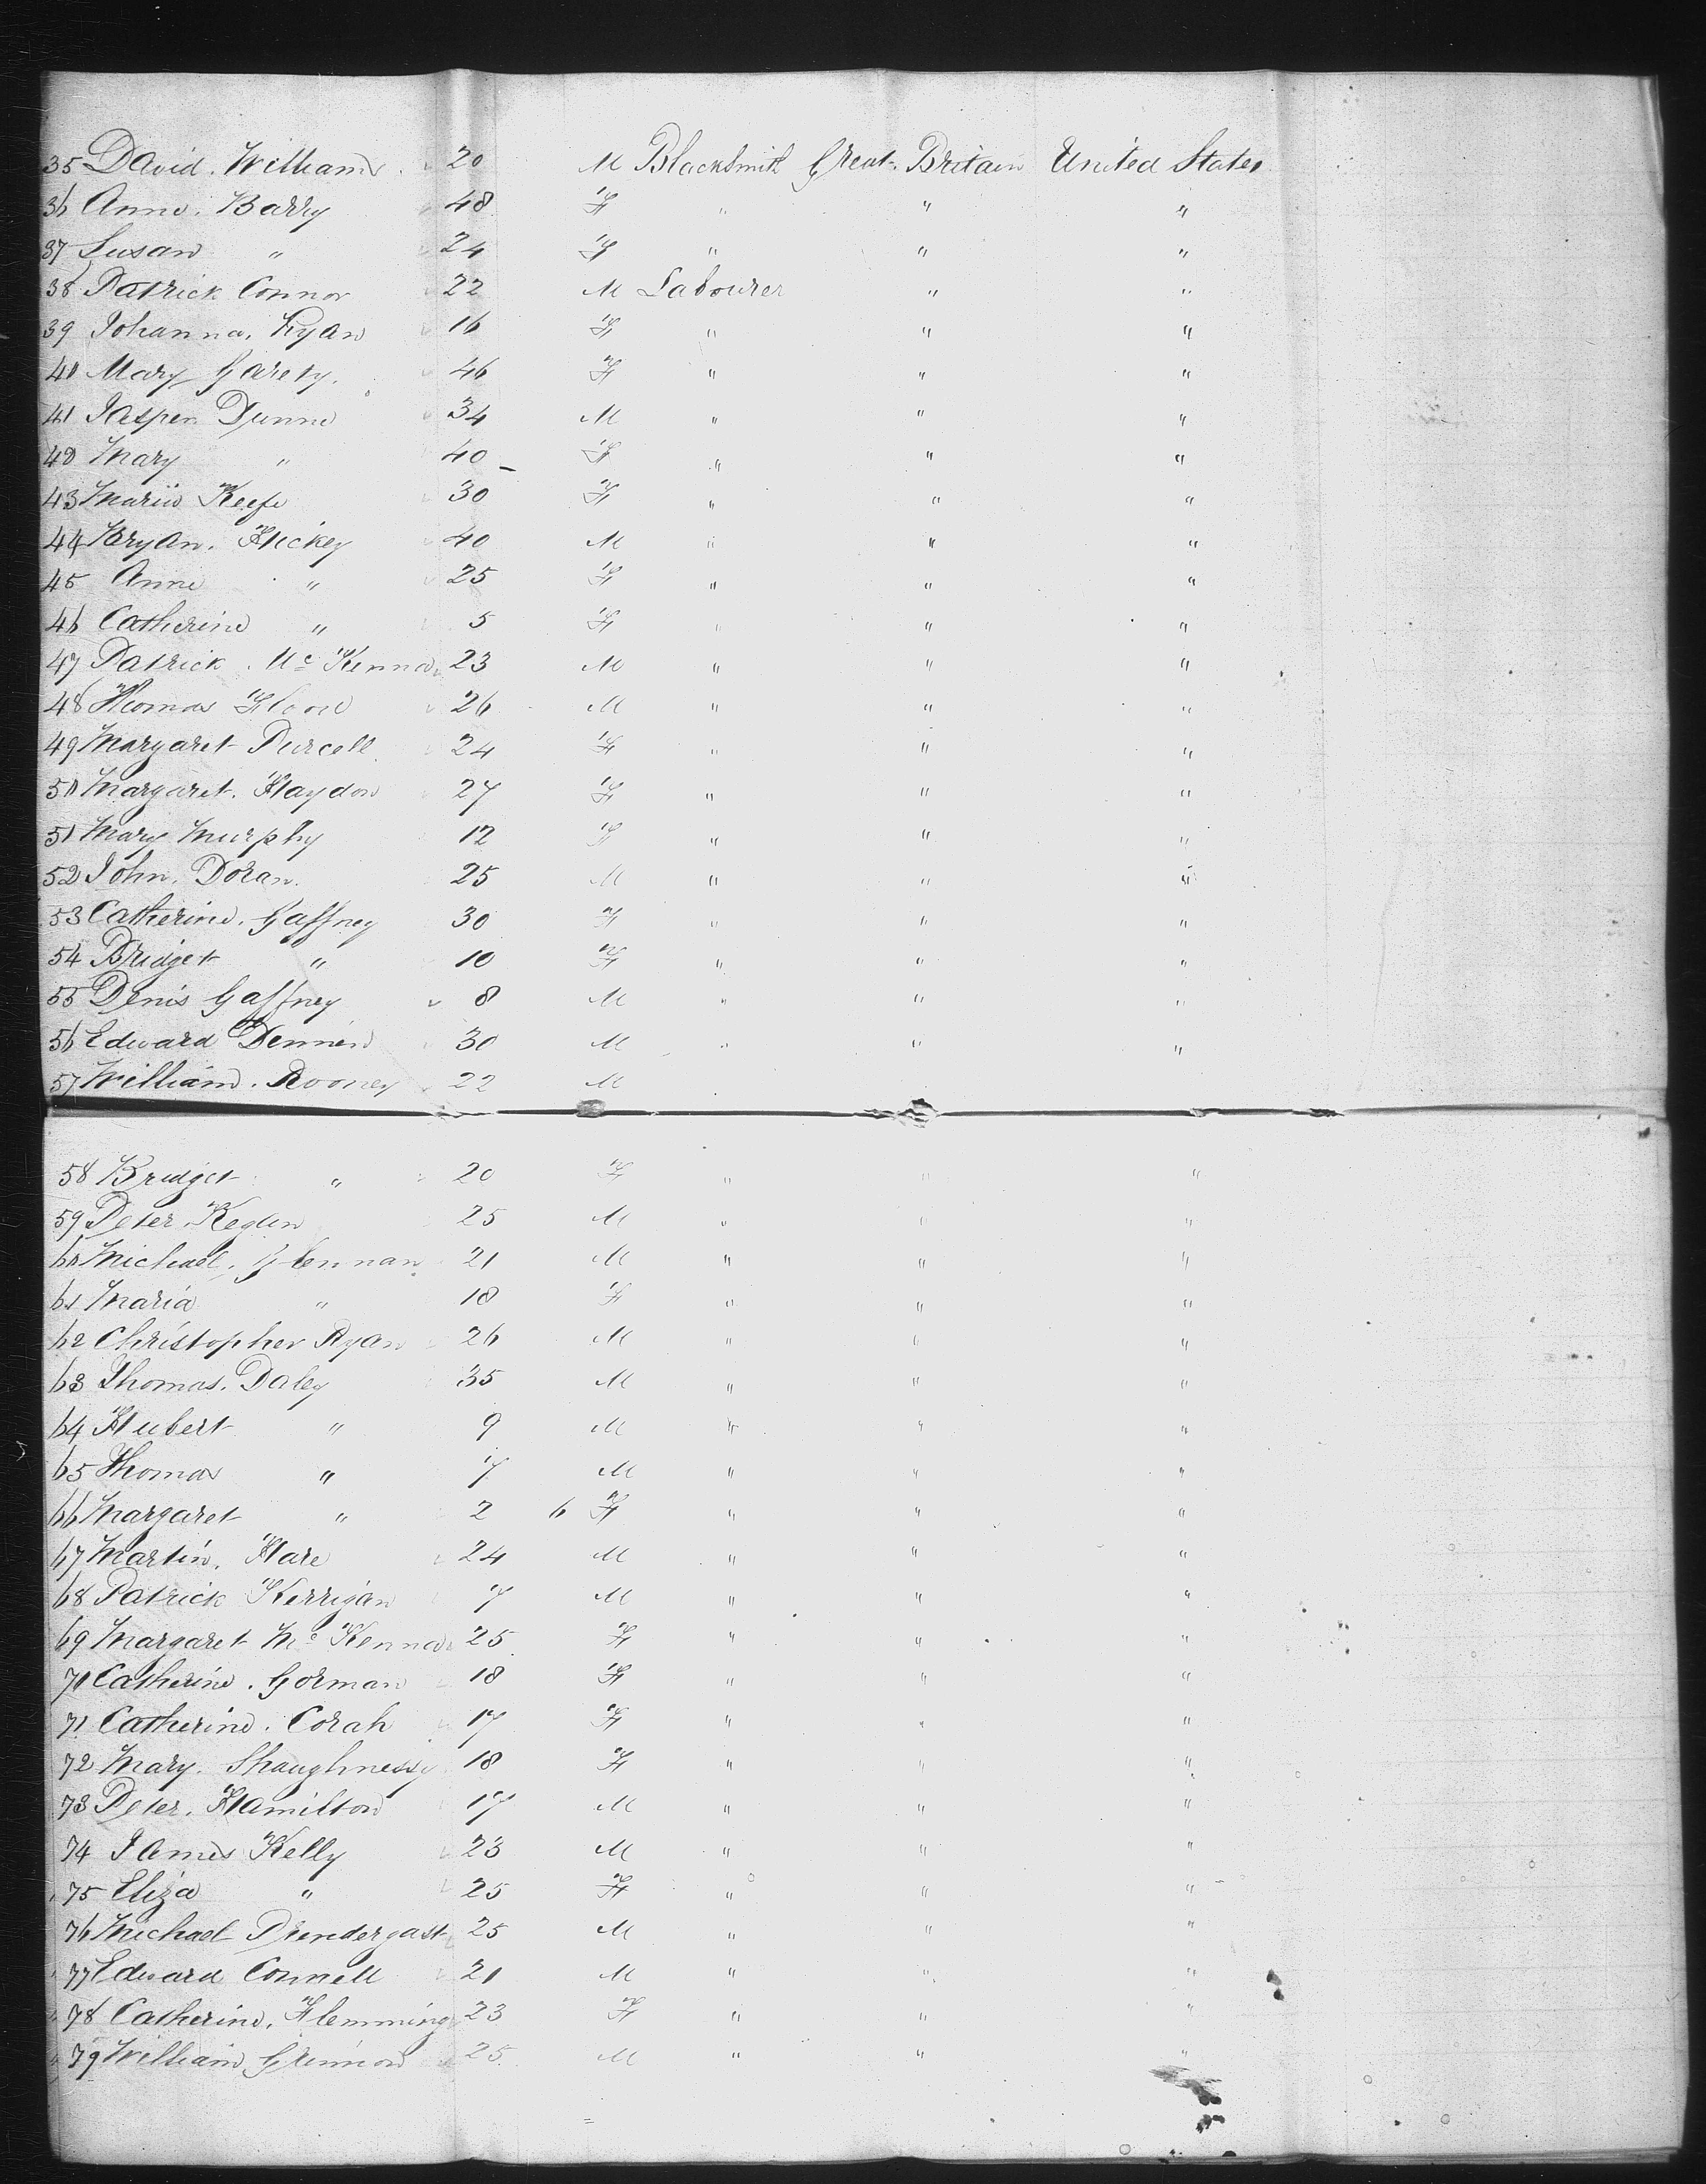 35 David. Williams 20 M Blacksmith Great. Britain United States
36 Anne. Barry 48 F " " "
37 Susan " 24 F " " "
38 Patrick Connor 22 M Labourer " "
39 Johanna. Ryan 16 F " " "
40 Mary Garety. 46 F " " "
41 Jasper Dunne 34 M " " "
42 Mary " 40 F " " "
43 Maria Keefe 30 F " " "
44 Bryan. Hickey 40 M " " "
45 Anne " 25 F " " "
46 Catherine " 5 F " " "
47 Patrick. Mc Kenna 23 M " " "
48 Thomas 26 M " " "
49 Margaret Purcell 24 F " " "
50 Margaret. Haydon 27 F " " "
51 Mary Murphy 12 F " " "
52 John. Doran. 25 M " " "
53 Catherine. Gaffney 30 F " " "
54 Bridget " 10 F " " "
55 Denis Gaffney 8 M " " "
56 Edward 30 M " " "
57 William. Rooney 22 M
58 Bridget " 20 F " " "
59 Peter 25 M " " "
60 Michael. Glennan 21 M " " "
61 Maria " 18 F " " "
62 Christopher Ryan 26 M " " "
63 Thomas. Daley 35 M " " "
64 Hubert " 9 M " " "
65 Thomas " 7 M " " "
66 Margaret " 2 6 F " " "
67 Martin. Hare 24 M " " "
68 Patrick Kerrigan 7 M " " "
69 Margaret Mc Kenna 25 F " " "
70 Catherine. Gorman 18 F " " "
71 Catherine. Corah 17 F " " "
72 Mary. Shaughnessy 18 F " " "
73 Peter. Hamilton 17 M " " "
74 James Kelly 23 M " " "
75 Eliza " 25 F " " "
76 Michael Prendergast 25 M " " "
77 Edward Connell 21 M " " "
78 Catherine. Flemming 23 F " " "
79 William 25 M " " "